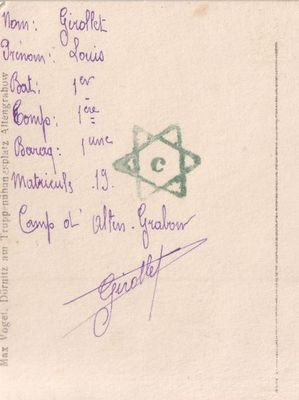 Nom: Girollet
Prénom: Louis
Bat: 1er
Comp: 1ère
Baraq: 1une
Matricule 19.
Camp d'Alten-Grabow
Girollet
c
Max Vogel, Dörnitz am Truppenübungsplatz Altengrabow